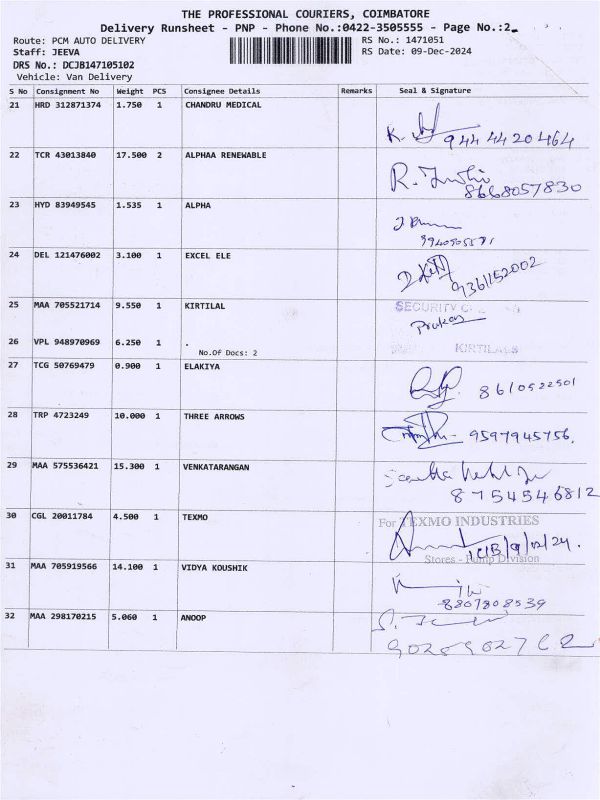 THE PROFESSIONAL COURIERS, COIMBATORE
Delivery Runsheet - PNP - Phone No.:0422-3505555 - Page No.:2
Route: PCM AUTO DELIVERY
RS No.: 1471051
Staff: JEEVA
RS Date: 09-Dec-2024
DRS No.: DCJB147105102
Vehicle: Van Delivery
S No Consignment No Weight PCS Consignee Details Remarks Seal & Signature
21 HRD 312871374 1.750 1 CHANDRU MEDICAL
9444420464
22 TCR 43013840 17.500 2 ALPHAA RENEWABLE
8668057830
23 HYD 83949545 1.535 1 ALPHA
24 DEL 121476002 3.100 1 EXCEL ELE
9361152002
25 MAA 705521714 9.550 1 KIRTILAL
SECURITY
26 VPL 948970969 6.250 1 .
KIRTILALS
No.Of Docs: 2
27 TCG 50769479 0.900 1 ELAKIYA
8610522501
28 TRP 4723249 10.000 1 THREE ARROWS
9597945756.
29 MAA 575536421 15.300 1 VENKATARANGAN
8754546812
30 CGL 20011784 4.500 1 TEXMO
For TEXMO INDUSTRIES
Stores - Pump Division
31 MAA 705919566 14.100 1 VIDYA KOUSHIK
8807808539
32 MAA 298170215 5.060 1 ANOOP